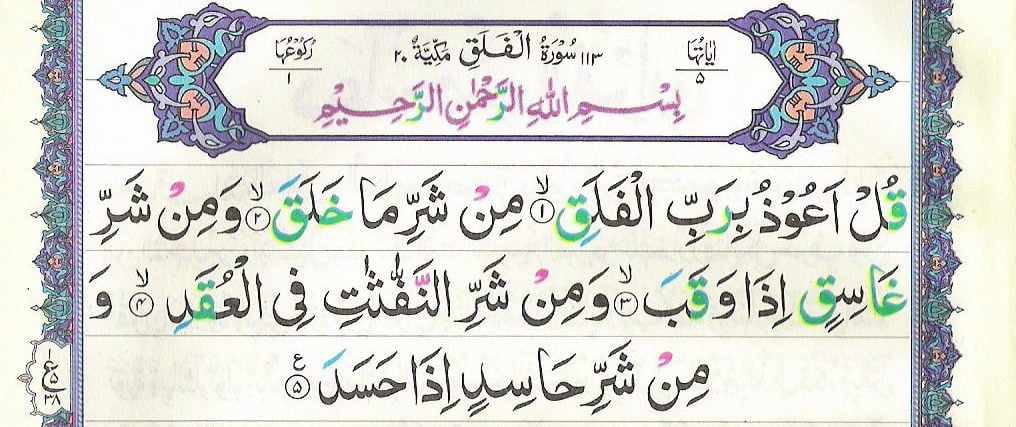 اٰيَاتُهَا ٥ ١١٣ سُوْرَةُ الْفَلَقِ مَكِّيَّةٌ ٢٠ رُكُوْعُهَا ١
بِسْمِ اللّٰهِ الرَّحْمٰنِ الرَّحِيْمِ
قُلْ اَعُوْذُ بِرَبِّ الْفَلَقِ ۙ۱ مِنْ شَرِّ مَا خَلَقَ ۙ۲ وَمِنْ شَرِّ
غَاسِقٍ اِذَا وَقَبَ ۙ۳ وَمِنْ شَرِّ النَّفّٰثٰتِ فِى الْعُقَدِ ۙ۴ وَ
مِنْ شَرِّ حَاسِدٍ اِذَا حَسَدَ ع ۵
١ ع ۵ ٣٨